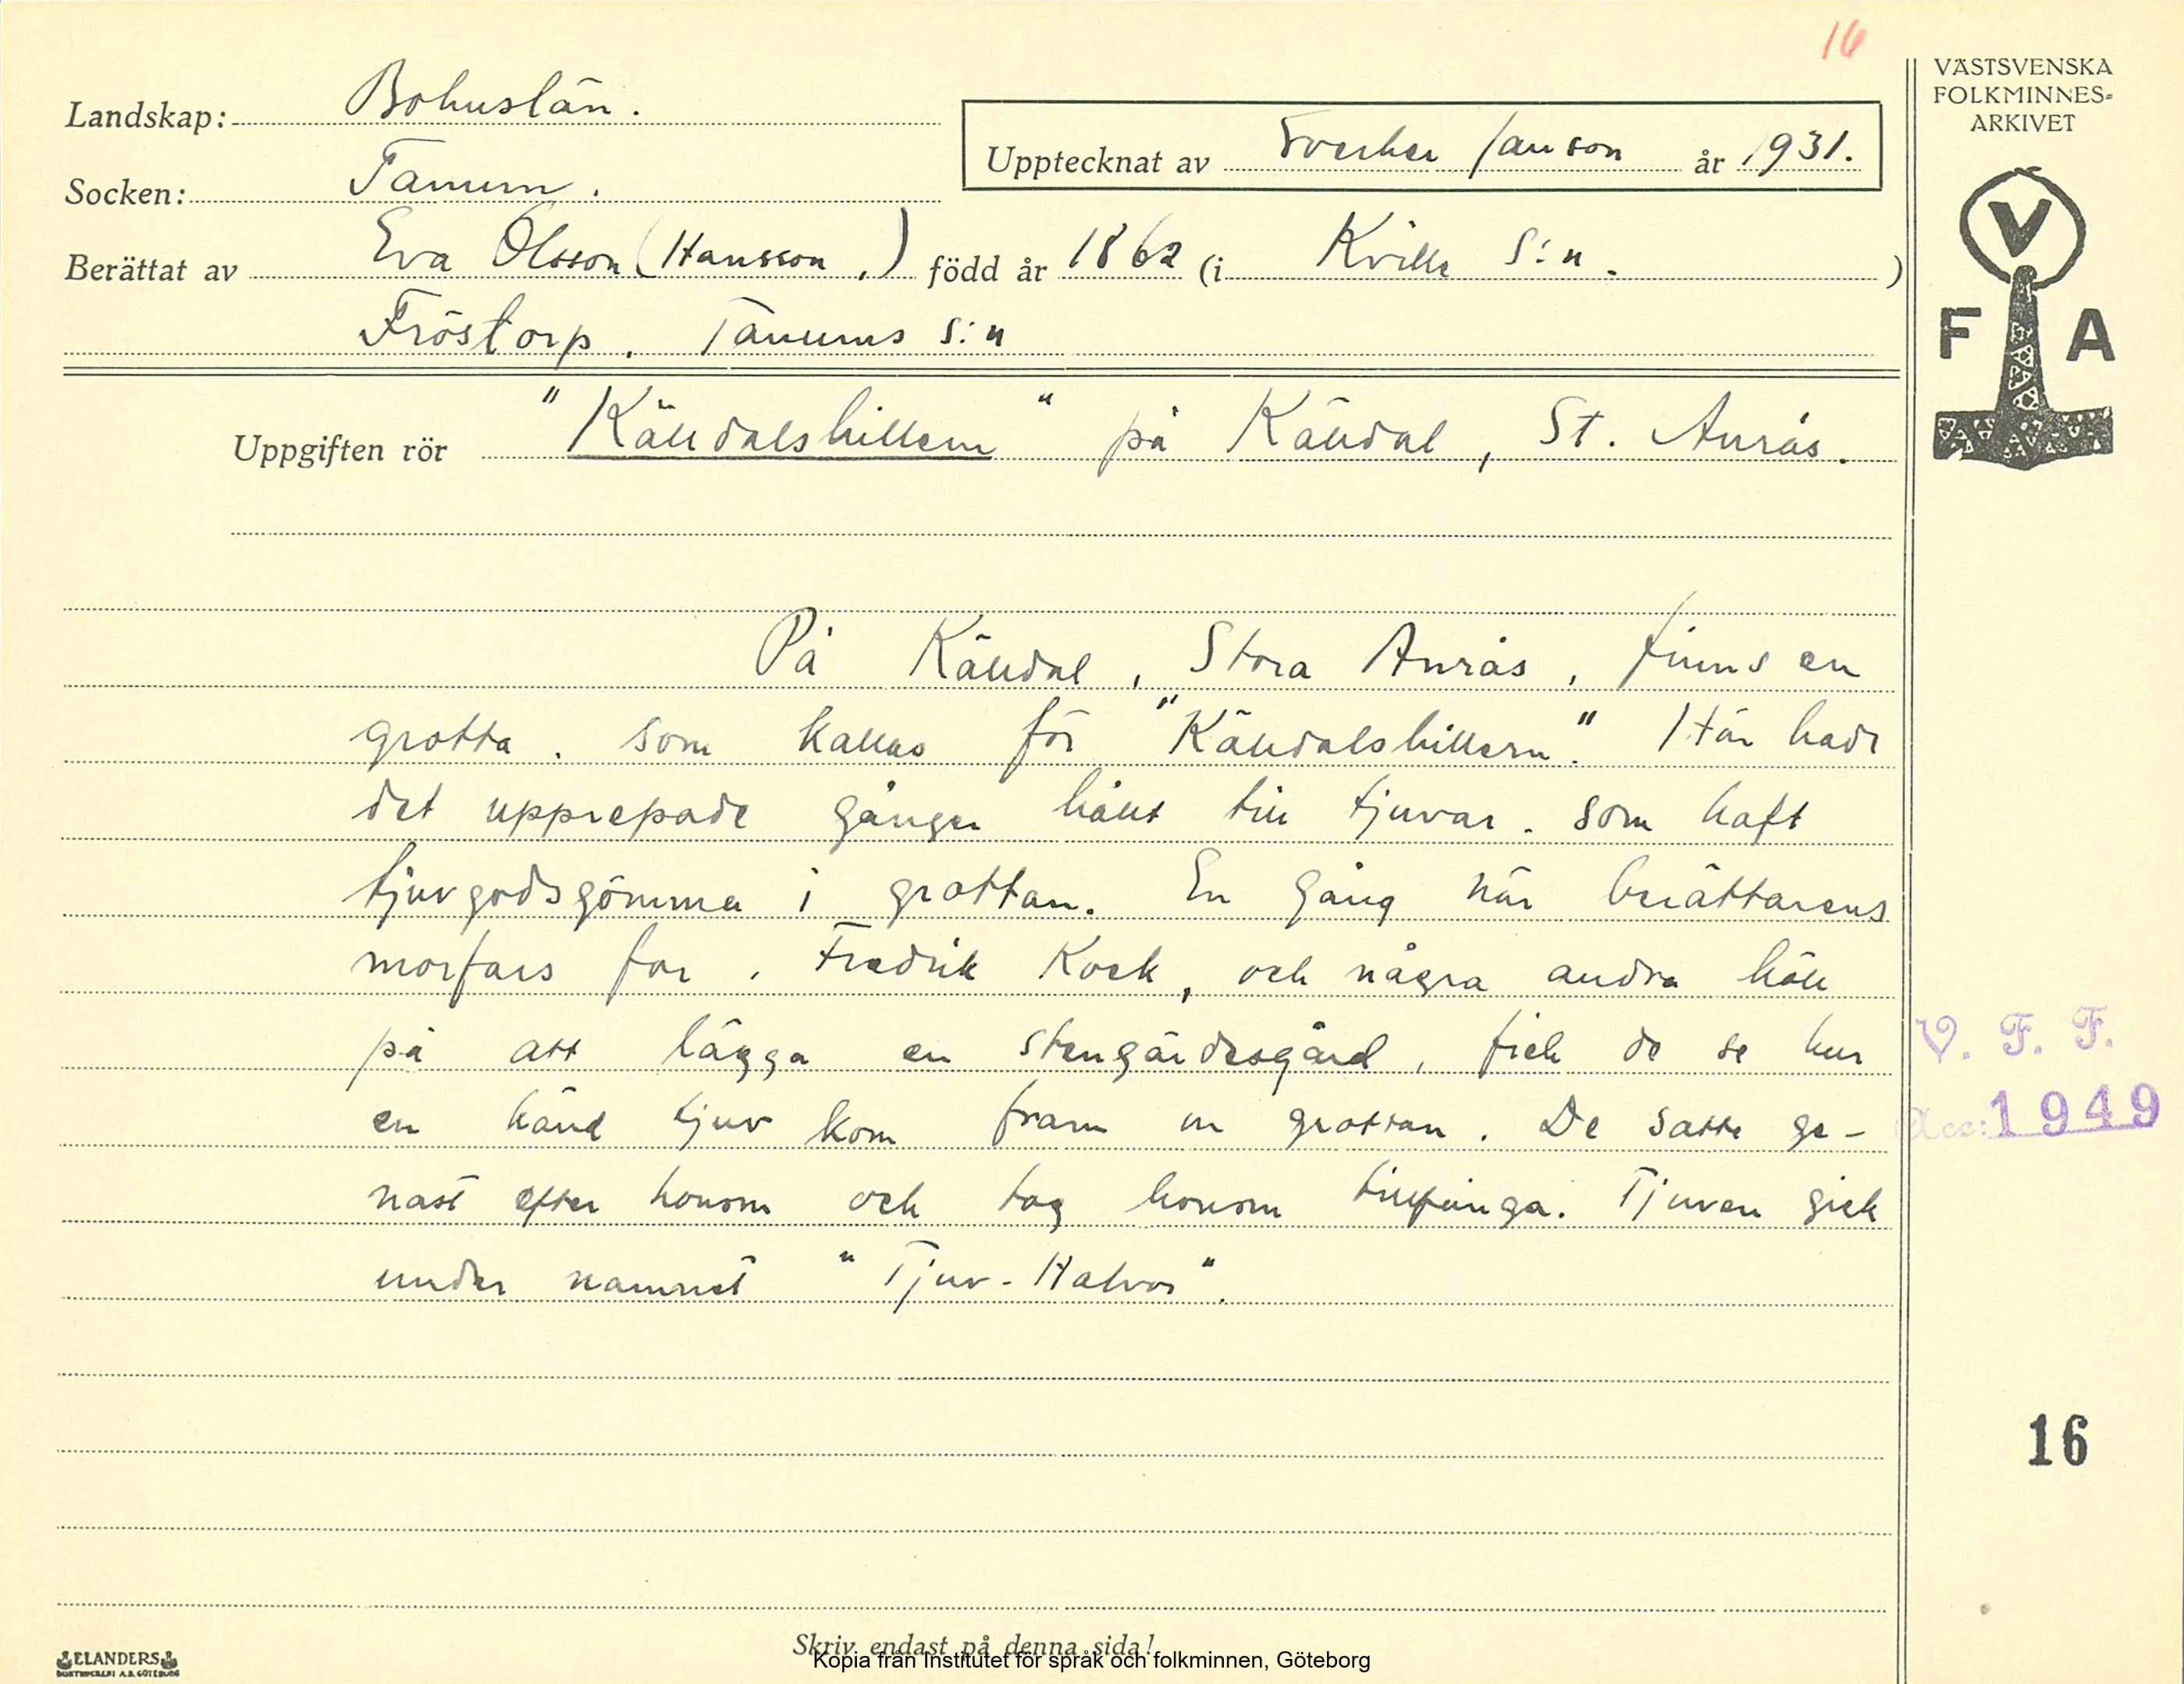 16
VÄSTSVENSKA
FOLKMINNES-
ARKIVET
Landskap: Bohuslän.
Upptecknat av Sverker Janson år 1931.
Socken: Tanum.
Berättat av Eva Olsson (Hansson,) född år 1862 (i Kville S:n.)
Fröstorp. Tanums S:n
V
F A
Uppgiften rör "Källdalshillern" på Källdal, St. Anrås.
På Källdal, Stora Anrås, finns en
grotta, som kallas för "Källdalshillern". Här hade
det upprepade gånger hållt till tjuvar, som haft
tjuvgodsgömma i grottan. En gång när berättarens
morfars far, Fredrik Kock, och några andra höll
på att lägga en stengärdesgård, fick de se hur
en känd tjuv kom fram ur grottan. De satte ge-
nast efter honom och tog honom tillfånga. Tjuven gick
under namnet "Tjuv-Halvor".
V. F. F.
Acc: 1949
16
Skriv endast på denna sida!
ELANDERS
BOKTRYCKERI A.B. GÖTEBORG
Kopia från Institutet för språk och folkminnen, Göteborg